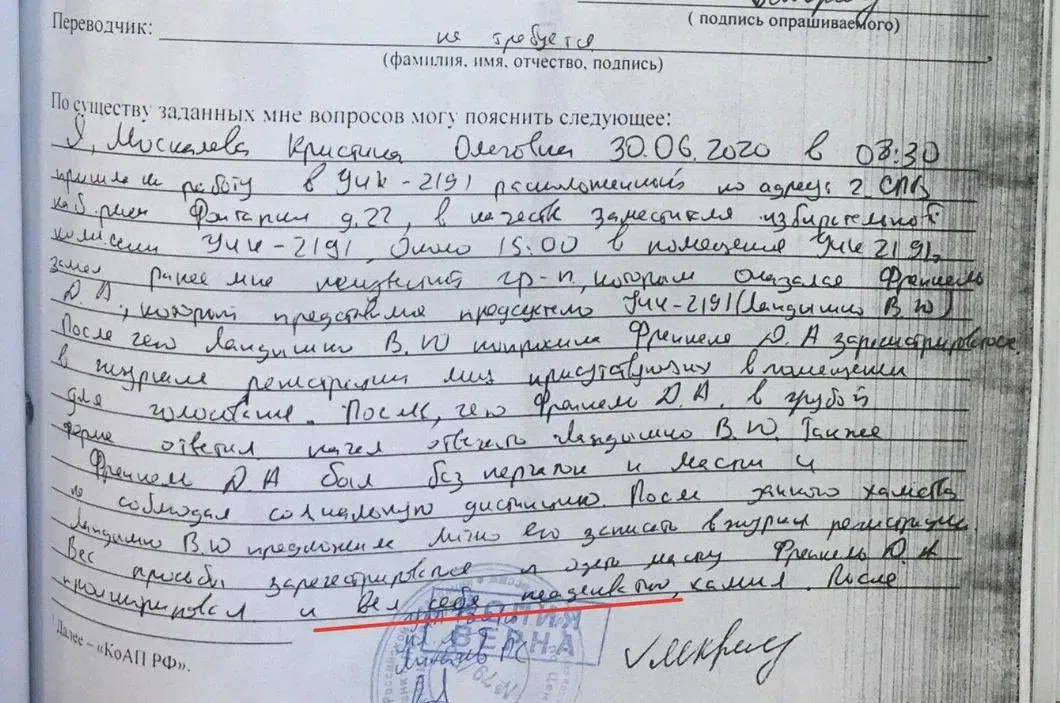 ( подпись опрашиваемого)
Переводчик: не требуется
(фамилия, имя, отчество, подпись)
По существу заданных мне вопросов могу пояснить следующее:
Я, Москалева Кристина Олеговна 30.06.2020 в 08:30
пришла на работу в УИК-2191 расположенный по адресу: г. СПб
наб. реки Фонтанки д.22, в качестве заместителя избирательной
комиссии УИК-2191. Около 15:00 в помещение УИК 2191,
зашел ранее мне неизвестный гр-н, которым оказался Френкель
Д.А., который представился председателю УИК-2191 (Ландышко В.Ю)
После чего Ландышко В.Ю попросила Френкеля Д.А зарегистрироваться
в журнале регистрации лиц присутствующих в помещении
для голосования. После, чего Френкель Д.А. в грубой
форме ответил начал отвечать Ландышко В.Ю. Также
Френкель Д.А был без перчаток и маски и
не соблюдал социальную дистанцию. После данного хамства
Ландышко В.Ю предложила лично его записать в журнал регистрации
Все просьбы зарегистрироваться и одеть маску Френкель Д.А
игнорировал и вел себя неадекватно, хамил. После
¹ Далее – «КоАП РФ».
КОПИЯ
ВЕРНА
№ 79